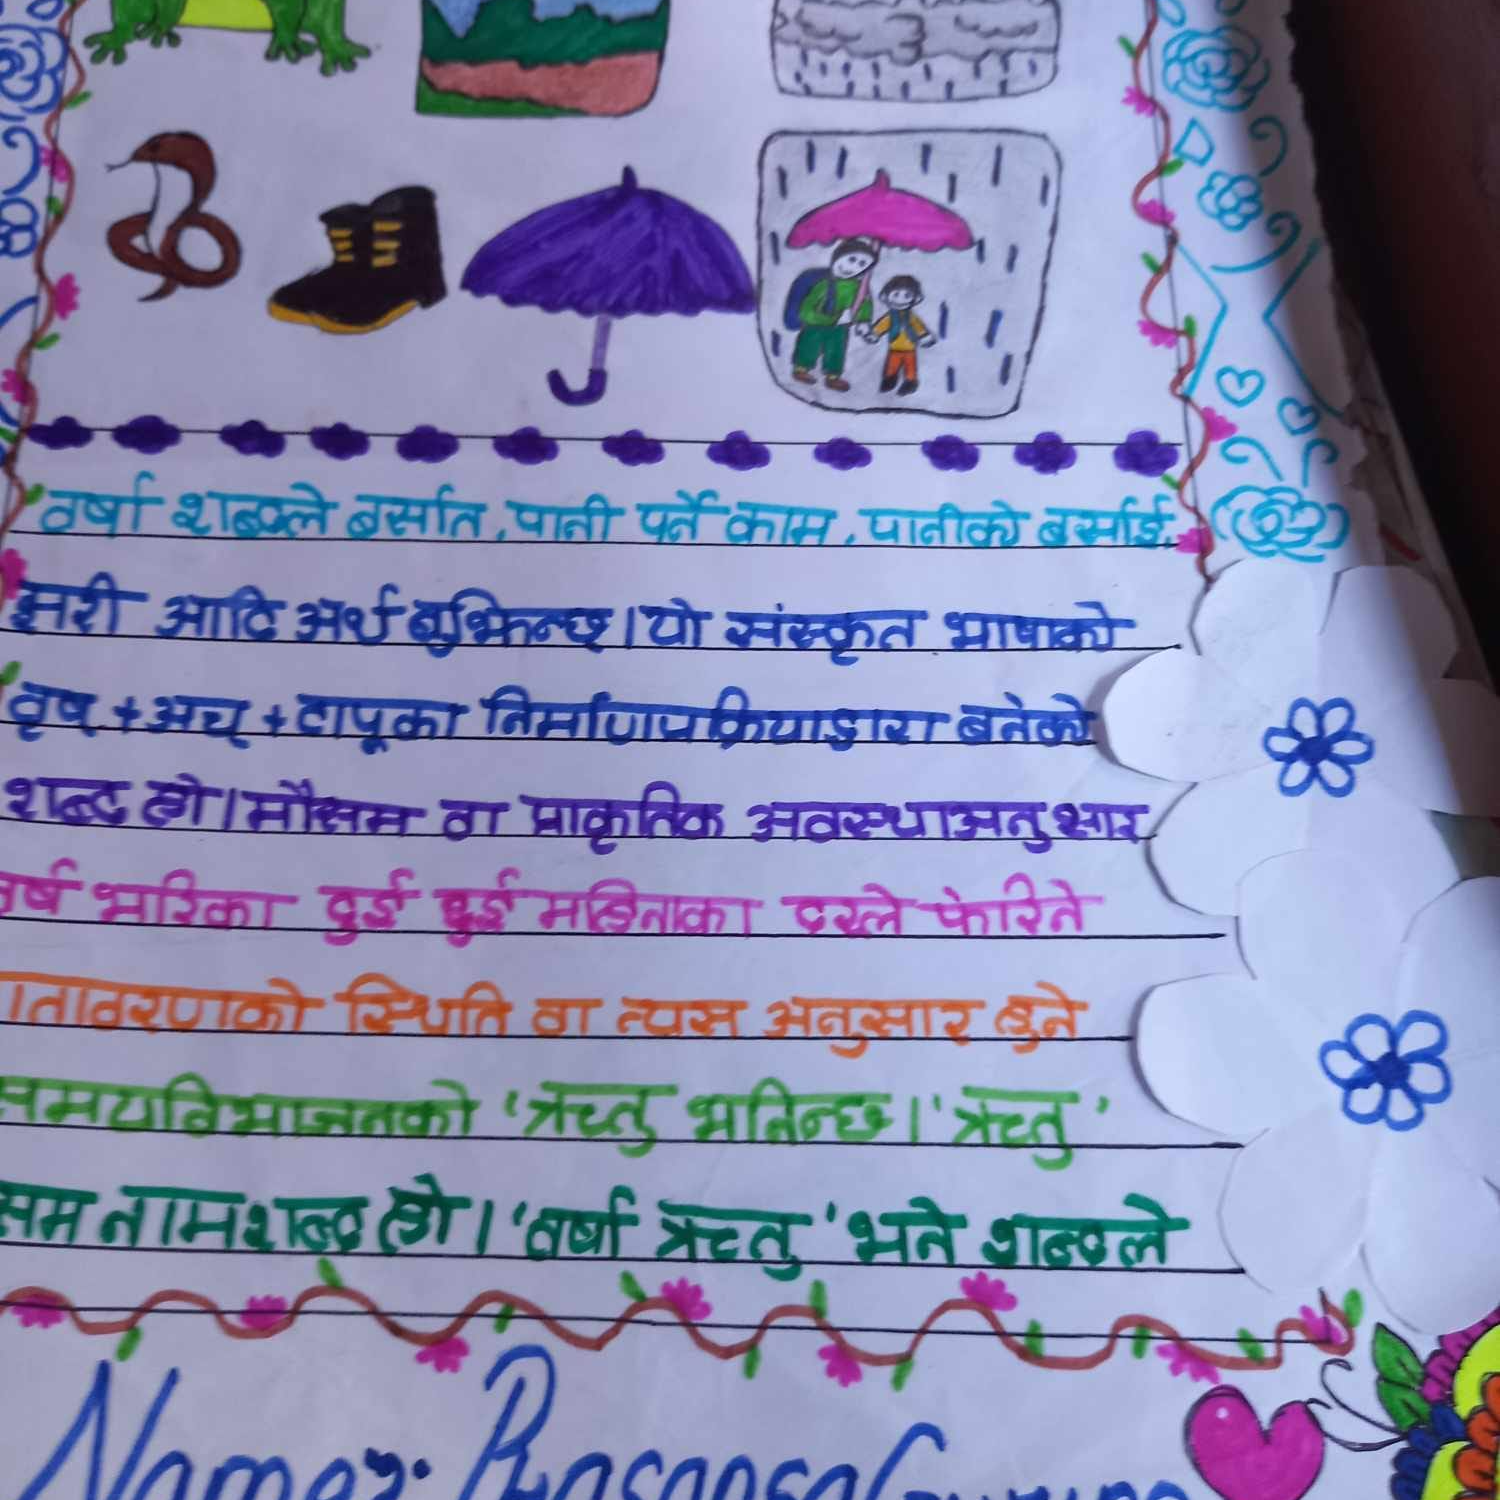 वर्षा शब्दले बर्सात, पानी पर्ने काम, पानीको बर्साई,
झरी आदि अर्थ बुझिन्छ। यो संस्कृत भाषाको
वृष + अच् + टापूका निर्माणप्रक्रियाद्वारा बनेको
शब्द हो। मौसम वा प्राकृतिक अवस्थाअनुसार
वर्ष भरिका दुई दुई महिनाका दरले फेरिने
ातावरणको स्थिति वा त्यस अनुसार हुने
समयविभाजनको 'ऋतु भनिन्छ। 'ऋतु'
सम नामशब्द हो। 'वर्षा ऋतु' भने शब्दले
Name: